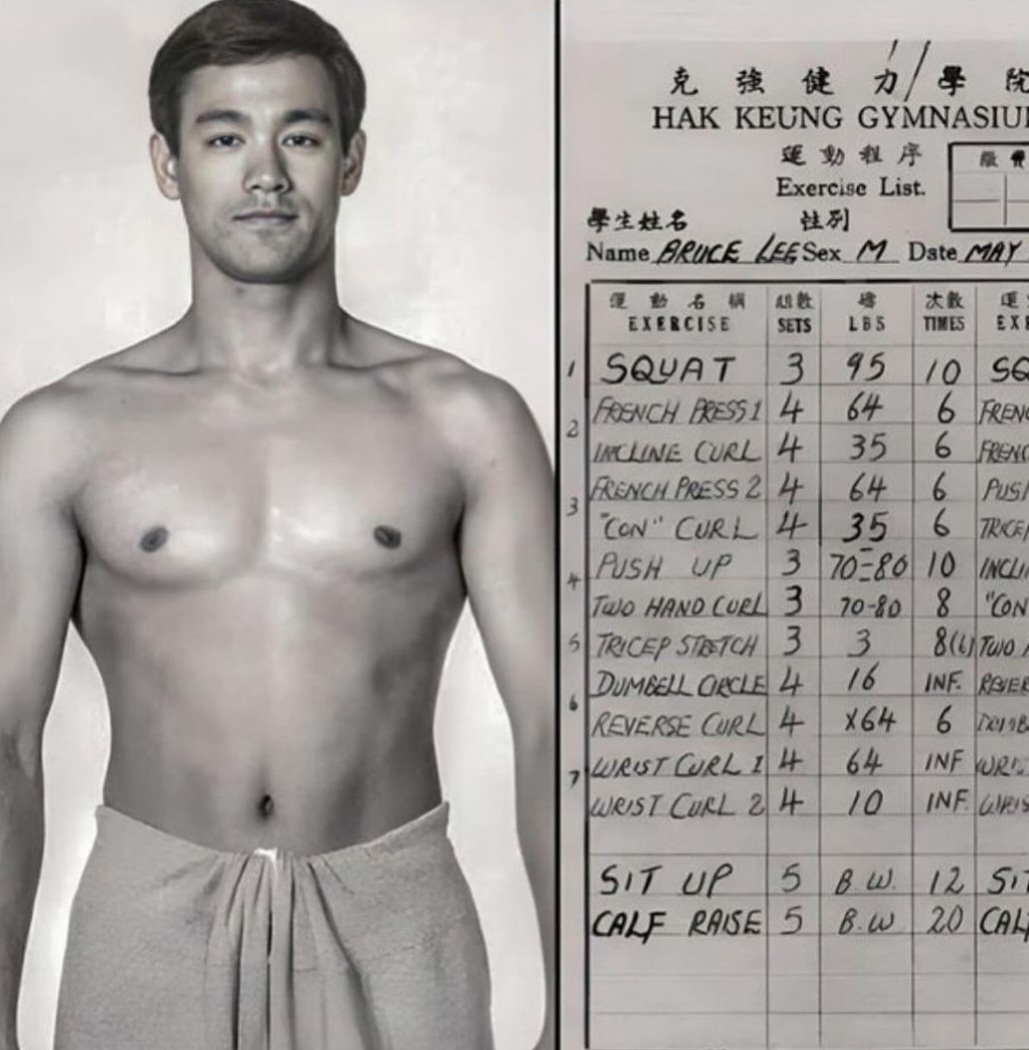 克強健力學院
HAK KEUNG GYMNASIU
運動程序
Exercise List.
學生姓名 性別
Name BRUCE LEE Sex M Date MAY
運動名稱 組數 磅 次數
EXERCISE SETS LBS TIMES EXE
1 SQUAT 3 95 10 SQ
2 FRENCH PRESS 1 4 64 6 FRENC
INCLINE CURL 4 35 6 FRENC
3 FRENCH PRESS 2 4 64 6 PUSH
"CON" CURL 4 35 6 TRICEP
4 PUSH UP 3 70-80 10 INCLI
TWO HAND CURL 3 70-80 8 "CON
5 TRICEP STRETCH 3 3 8(L) TWO
6 DUMBELL CIRCLE 4 16 INF. REVER
REVERSE CURL 4 X64 6
7 WRIST CURL 1 4 64 INF WRIS
WRIST CURL 2 4 10 INF. WRIS
SIT UP 5 B.W. 12 SIT
CALF RAISE 5 B.W 20 CALF